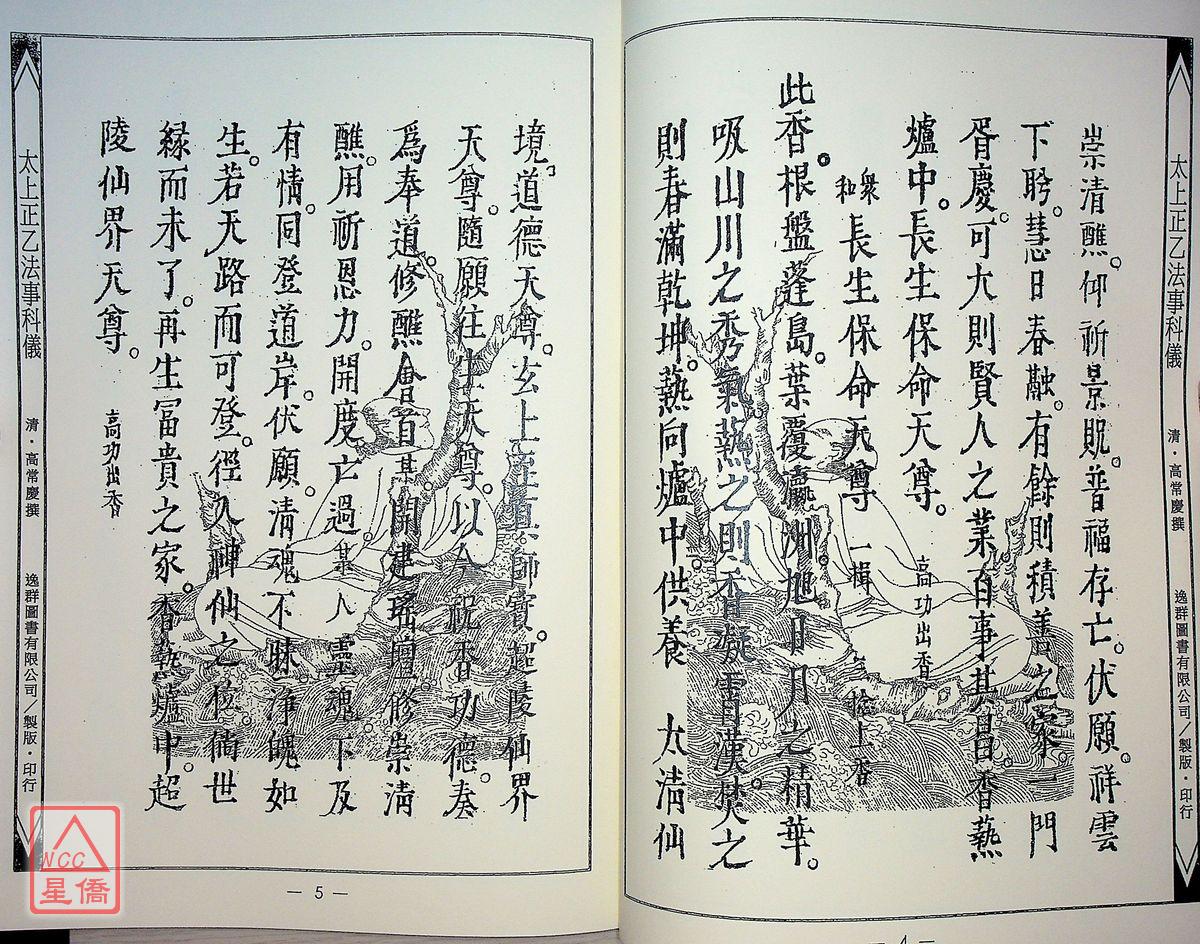 太上正乙法事科儀
清・高常慶撰
逸群圖書有限公司／製版・印行
崇清醮。仰祈景貺。普福存亡。伏願。祥雲
下聆。慧日春融。有餘則積善之家。一門
胥慶。可大則賢人之業。百事其昌。香爇
爐中。長生保命天尊。 高功出香
衆和 長生保命天尊 一楫 上香
此香。根盤蓬島。葉覆瀛洲。旭日月之精華。
吸山川之秀氣。爇之則香凝霄漢。焚之
則春滿乾坤。爇向爐中供養 太清仙
境。道德天尊。玄上 師寶。超陵仙界
天尊。隨願往生天尊。以今祝香功德。奏
爲奉道。修醮會首某。開建瑤壇。修崇清
醮。用祈恩力。開度。亡過。某人靈魂。下及
有情。同登道岸。伏願。清魂不昧。淨魄如
生。若天路而可登。徑入神仙之位。倘世
緣而未了。再生富貴之家。香爇爐中。超
陵仙界天尊。 高功出香
太上正乙法事科儀
清・高常慶撰
逸群圖書有限公司／製版・印行
— 5 —
— 4 —
WCC
星僑